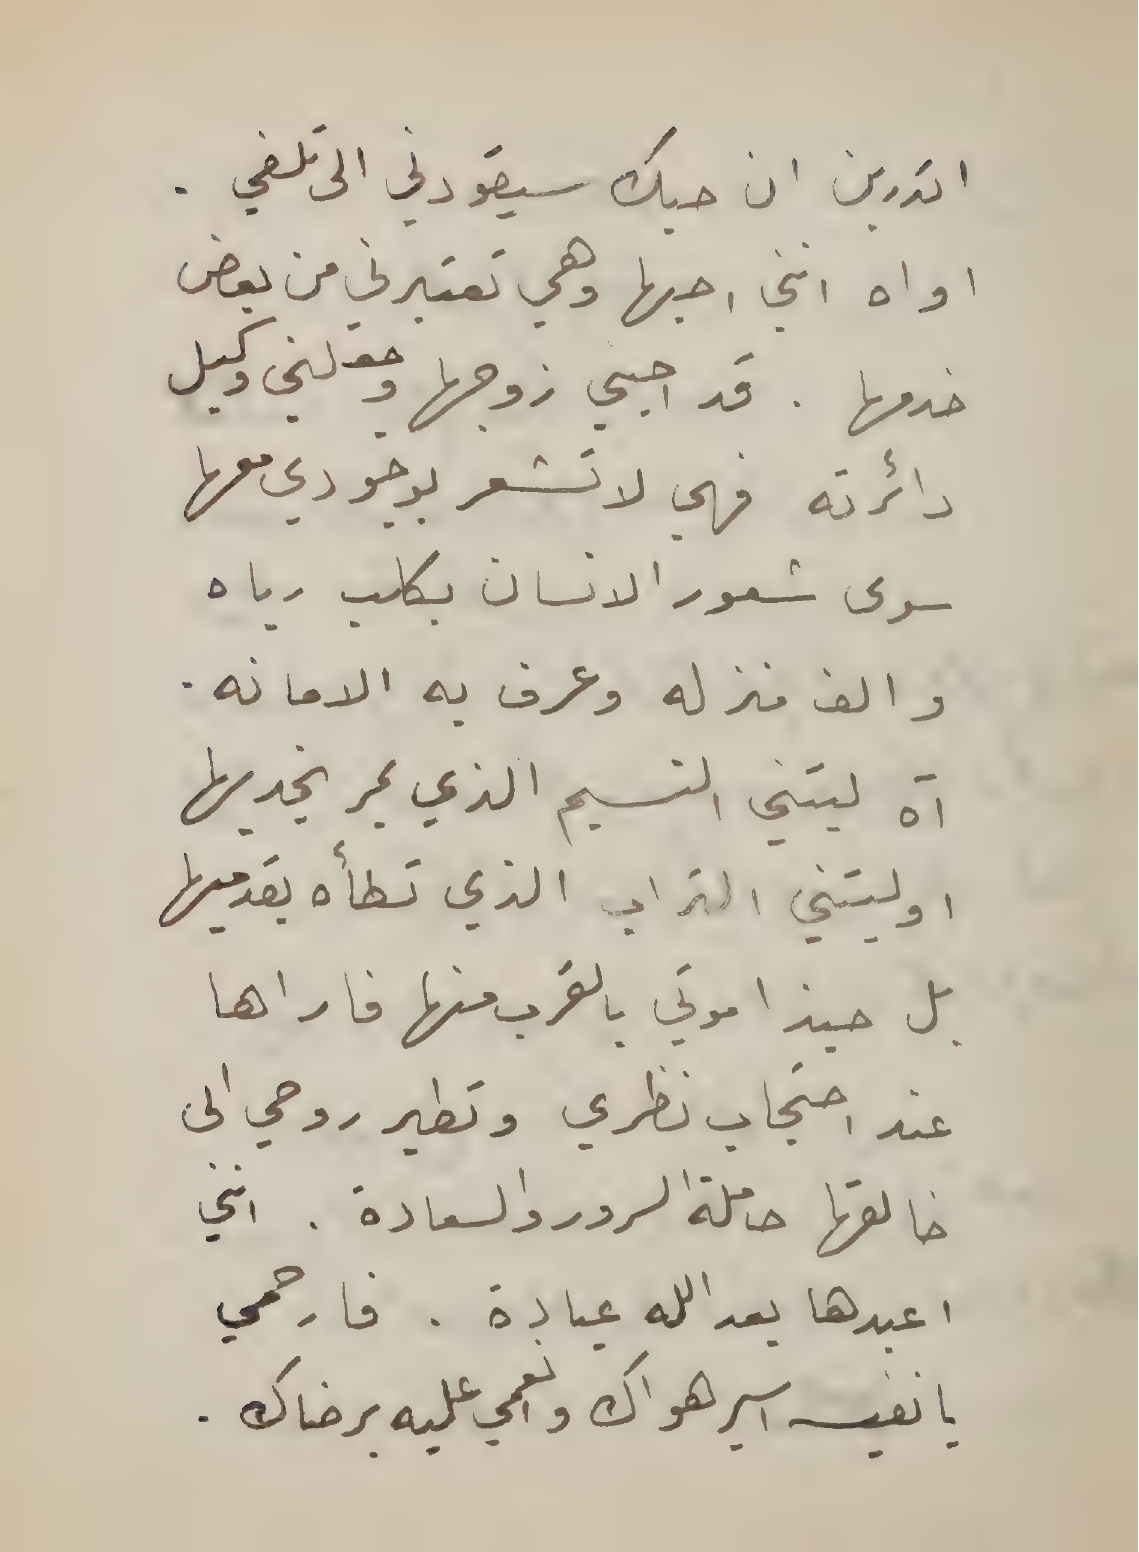 اتدرين ان حبك سيقودني الى تلفي .
اواه انني احبها وهي تعتبرني من بعض
خدمها . قد احبني زوجها وجعلني وكيل
دائرته فهي لا تشعر بوجودي معها
سوى شعور الانسان بكلب رباه
والف منزله وعرف به الامانه .
آه ليتني النسيم الذي يمر بخديها
او ليتني التراب الذي تطأه بقدميها
بل حبذا موتي بالقرب منها فاراها
عند احتجاب نظري وتطير روحي الى
خالقها حاملة السرور والسعادة . انني
اعبدها بعد الله عبادة . فارحمي
يا نفيسه اسير هواك وانعمي عليه برضاك .